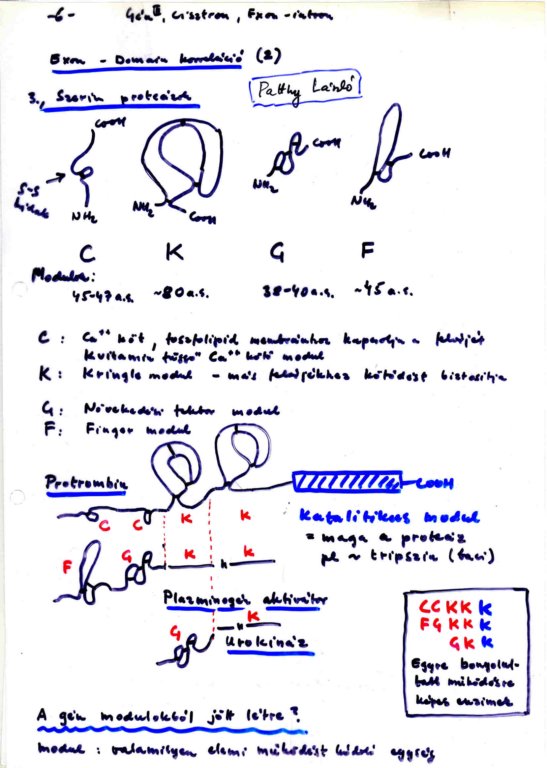 -6-   Gén II, cisztron, Exon-intron
Exon - Domain korreláció (2)
3., Szerin proteázok   Patthy László
COOH   COOH   COOH
S-S
NH2   NH2   COOH   NH2   NH2
C   K   G   F
Modulok:
45-47 a.s.   ~80 a.s.   38-40 a.s.   ~45 a.s.
C: Ca++ köt, foszfolipid membránhoz kapcsolja a fehérjét
K vitamin függő Ca++ kötő modul
K: Kringle modul - más fehérjékhez kötődést biztosítja
G: Növekedési faktor modul
F: Finger modul
Protrombin   COOH
C   C   K   K   Katalitikus modul
= maga a proteáz
pl ~ tripszin (baci)
F   G   K   K
Plazminogén aktivátor
G   K
Urokináz
CCKK K
FGKK K
GK K
Egyre bonyolul-
tabb működésre
képes enzimek
A gén modulokból jött létre?
modul: valamilyen elemi működést kódoló egység